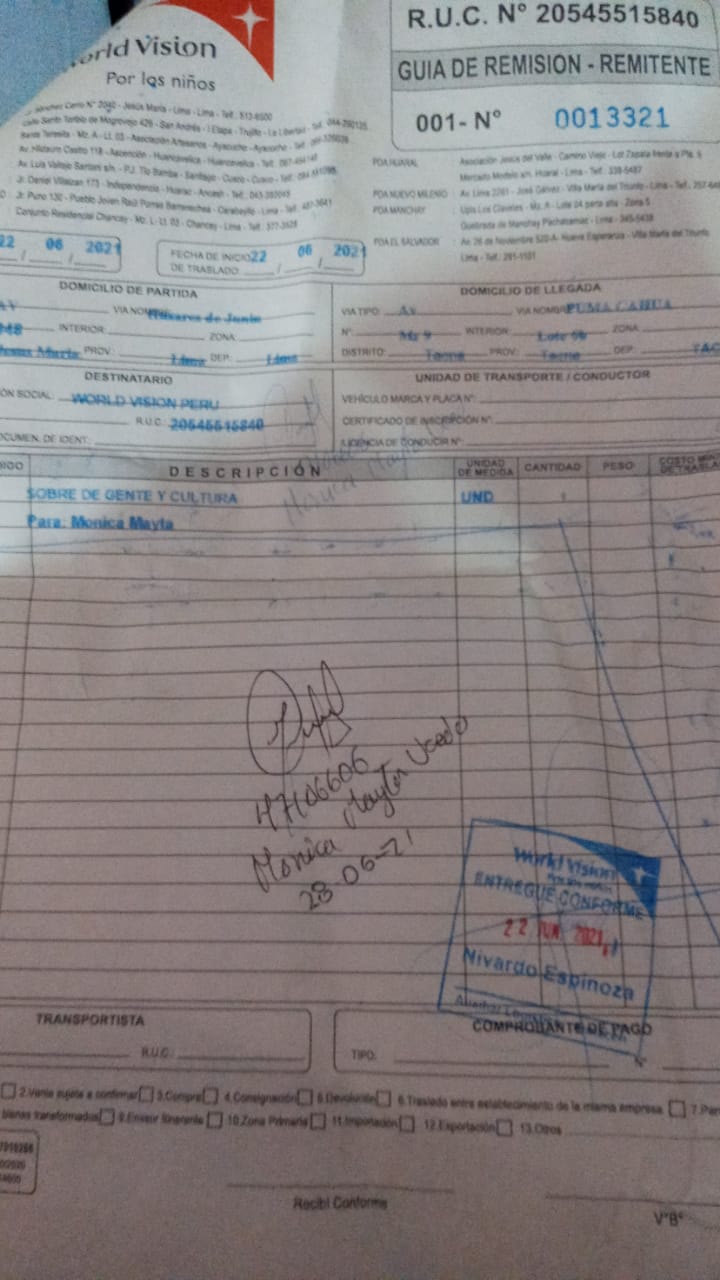 World Vision
Por los niños
R.U.C. N° 20545515840
GUIA DE REMISION - REMITENTE
001- N° 0013321
Sánchez Cerro N° 2040 - Jesús María - Lima - Lima - Telf.: 513-6500
Santo Toribio de Mogrovejo 429 - San Andrés - I Etapa - Trujillo - La Libertad - Tel.
Santa Teresita - Mz. A - Lt. 03 - Asociación Artesanos - Ayacucho - Ayacucho - Tel.
Av. Castro 118 - Ascención - Huancavelica - Huancavelica - Telf.
Av. Luis Vallejo Santoni s/n - P.J. Tio Bamba - Santiago - Cusco - Cusco - Telf.
Jr. Daniel Villaizan 173 - Independencia - Huaraz - Ancash - Telf.
Jr. Puno 130 - Pueblo Joven Raúl Porras Barrenechea - Carabayllo - Lima - Telf.
Conjunto Residencial Chancay - Mz. L - Lt. 03 - Chancay - Lima - Telf. 377-3528
PDA HUARAL Asociación Jesús del Valle - Camino Viejo - Lot Zapata frente a
Mercado Modelo s/n Huaral - Lima - Telf.: 339-5487
PDA NUEVO MILENIO Av. Lima 2261 - José Gálvez - Villa María del Triunfo - Lima - Telf.
PDA MANCHAY Upis Los Claveles - Mz. A - Lote 04 parte alta - Zona 5
Quebrada de Manchay Pachacamac - Lima
PDA EL SALVADOR Av. 26 de Noviembre 520-A - Nueva Esperanza - Villa María del Triunfo
Lima - Telf.: 291-1101
22 / 06 / 2021
FECHA DE INICIO DE TRASLADO 22 / 06 / 2021
DOMICILIO DE PARTIDA
AV VIA NOMB Húsares de Junín
INTERIOR: ZONA:
Jesus Maria PROV: Lima DEP: Lima
DOMICILIO DE LLEGADA
VIA TIPO: Av VIA NOMBRE PUMA CAHUA
N°: Mz 9 INTERIOR: Lote ZONA:
DISTRITO: Tacna PROV: Tacna DEP: TAC
DESTINATARIO
ÓN SOCIAL: WORLD VISION PERU
R.U.C: 20545515840
OCUMEN. DE IDENT.:
UNIDAD DE TRANSPORTE / CONDUCTOR
VEHÍCULO MARCA Y PLACA N°:
CERTIFICADO DE INSCRIPCIÓN N°:
LICENCIA DE CONDUCIR N°:
DIGO DESCRIPCIÓN UNIDAD DE MEDIDA CANTIDAD PESO COSTO
SOBRE DE GENTE Y CULTURA UND
Para: Monica Mayta
47106606
Monica Mayta Ucedo
28-06-21
World Vision
ENTREGUÉ CONFORME
22 JUN. 2021
Nivardo Espinoza
TRANSPORTISTA
R.U.C:
COMPROBANTE DE PAGO
TIPO: N°
2.Venta sujeta a confirmar 3.Compra 4.Consignación 5.Devolución 6.Traslado entre establecimiento de la misma empresa 7.Par
bienes transformados 9.Emisor Itinerante 10.Zona Primaria 11.Importación 12.Exportación 13.Otros
Recibí Conforme
V°B°